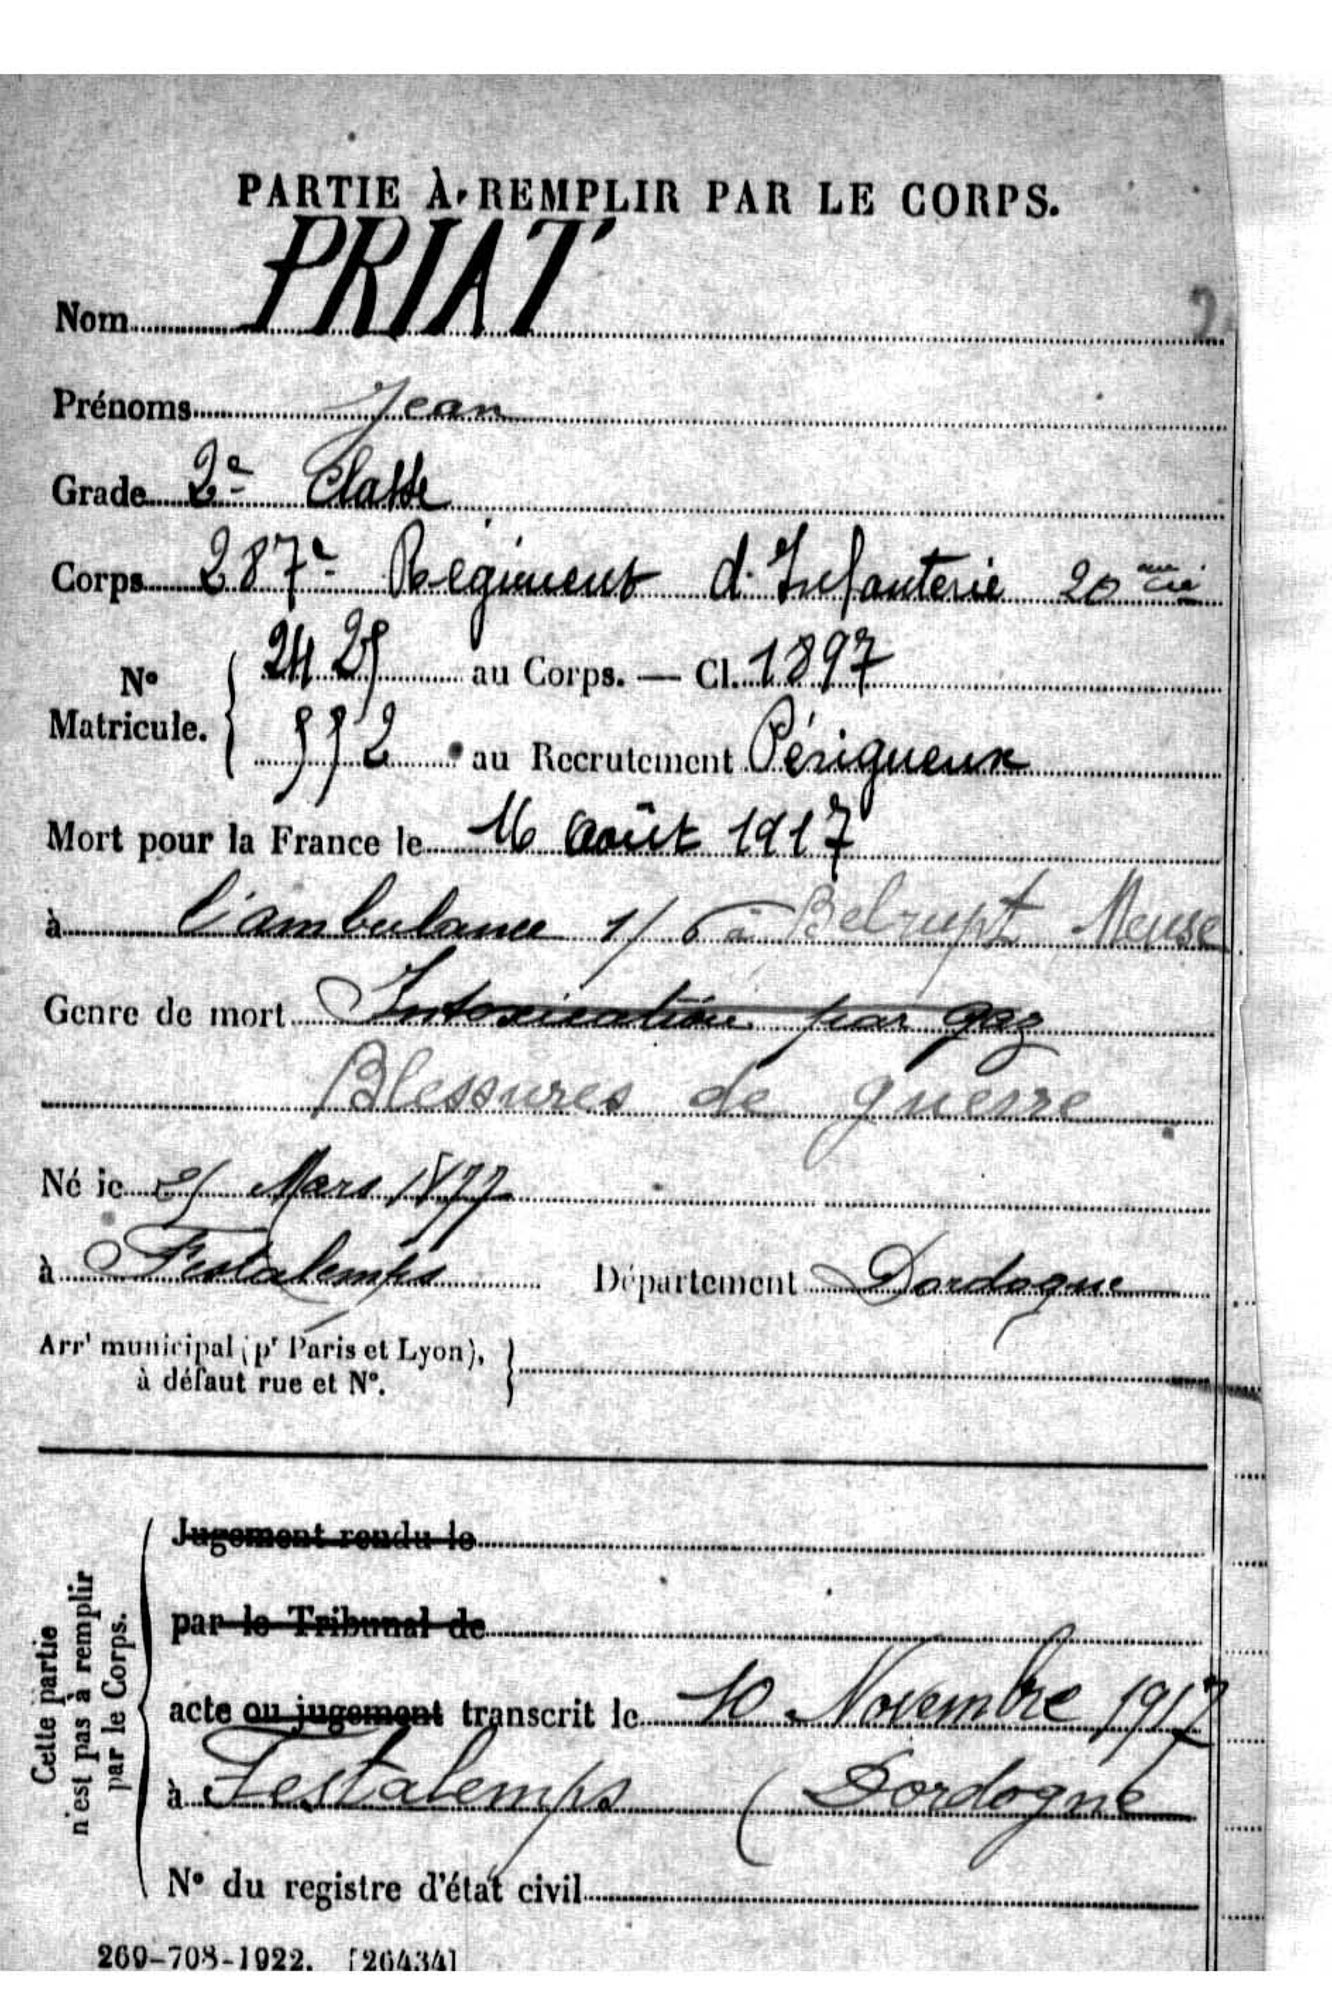 PARTIE À REMPLIR PAR LE CORPS.
Nom PRIAT
2
Prénoms Jean
Grade 2e Classe
Corps 287e Régiment d'Infanterie 20eme Cie
No Matricule. { 2425 au Corps. — Cl. 1897
552 au Recrutement Périgueux
Mort pour la France le 16 Août 1917
à l'ambulance 1/6 à Belrupt Meuse
Genre de mort Intoxication par gaz
Blessures de guerre
Né le Mars 1877
à Festalemps Département Dordogne
Arrt municipal (pr Paris et Lyon),
à défaut rue et No.
Cette partie
n'est pas à remplir
par le Corps.
Jugement rendu le
par le Tribunal de
acte ou jugement transcrit le 10 Novembre 1917
à Festalemps (Dordogne
No du registre d'état civil
269-708-1922. [26434]